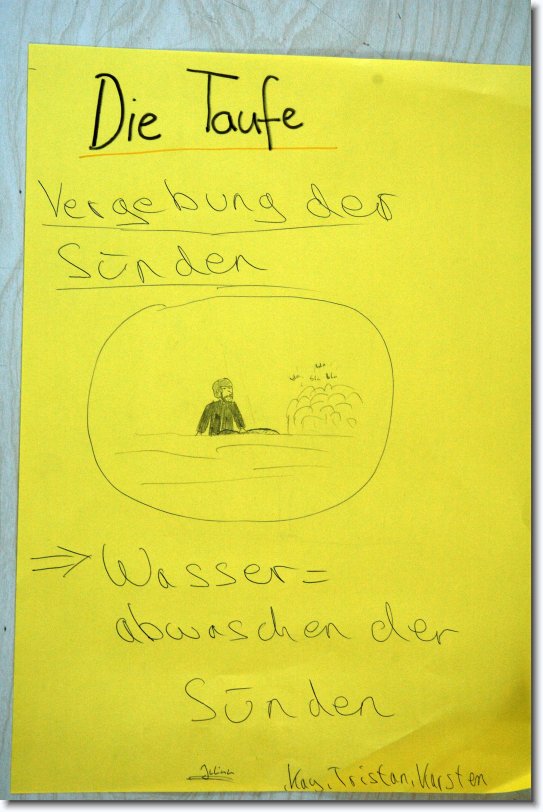 Die Taufe
Vergebung der
Sünden
bla bla
⇒ Wasser=
abwaschen der
Sünden
, Kay, Tristan, Karsten